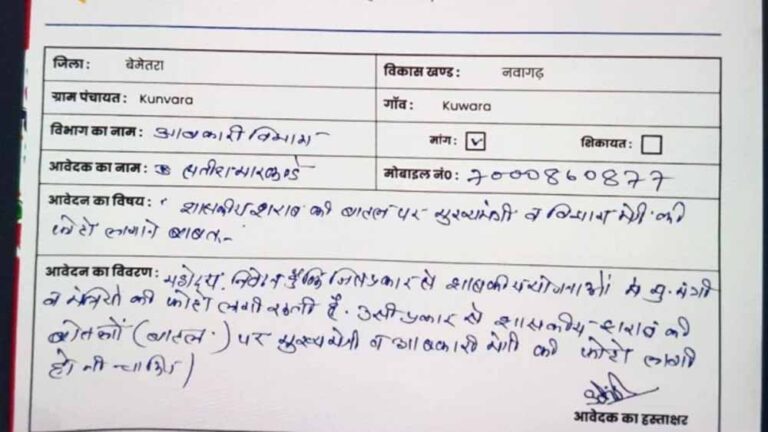 जिला : बेमेतरा विकास खण्ड : नवागढ़
ग्राम पंचायत : Kunvara गाँव : Kuwara
विभाग का नाम : आबकारी विभाग मांग : ☑ शिकायत : ☐
आवेदक का नाम : सतीश मारकण्डे मोबाइल नं० : 7000860877
आवेदन का विषय : शासकीय शराब की बातल पर मुख्यमंत्री व विभाग मंत्री की
फोटो लगाने बाबत.
आवेदन का विवरण : महोदय, निवेदन है कि जिस प्रकार से शासकीय योजनाओं में मु. मंत्री
व मंत्रियों की फोटो लगी रहती है. उसी प्रकार से शासकीय शराब की
बोतलों (बातल) पर मुख्यमंत्री व आबकारी मंत्री की फोटो लगी
होनी चाहिए
आवेदक का हस्ताक्षर